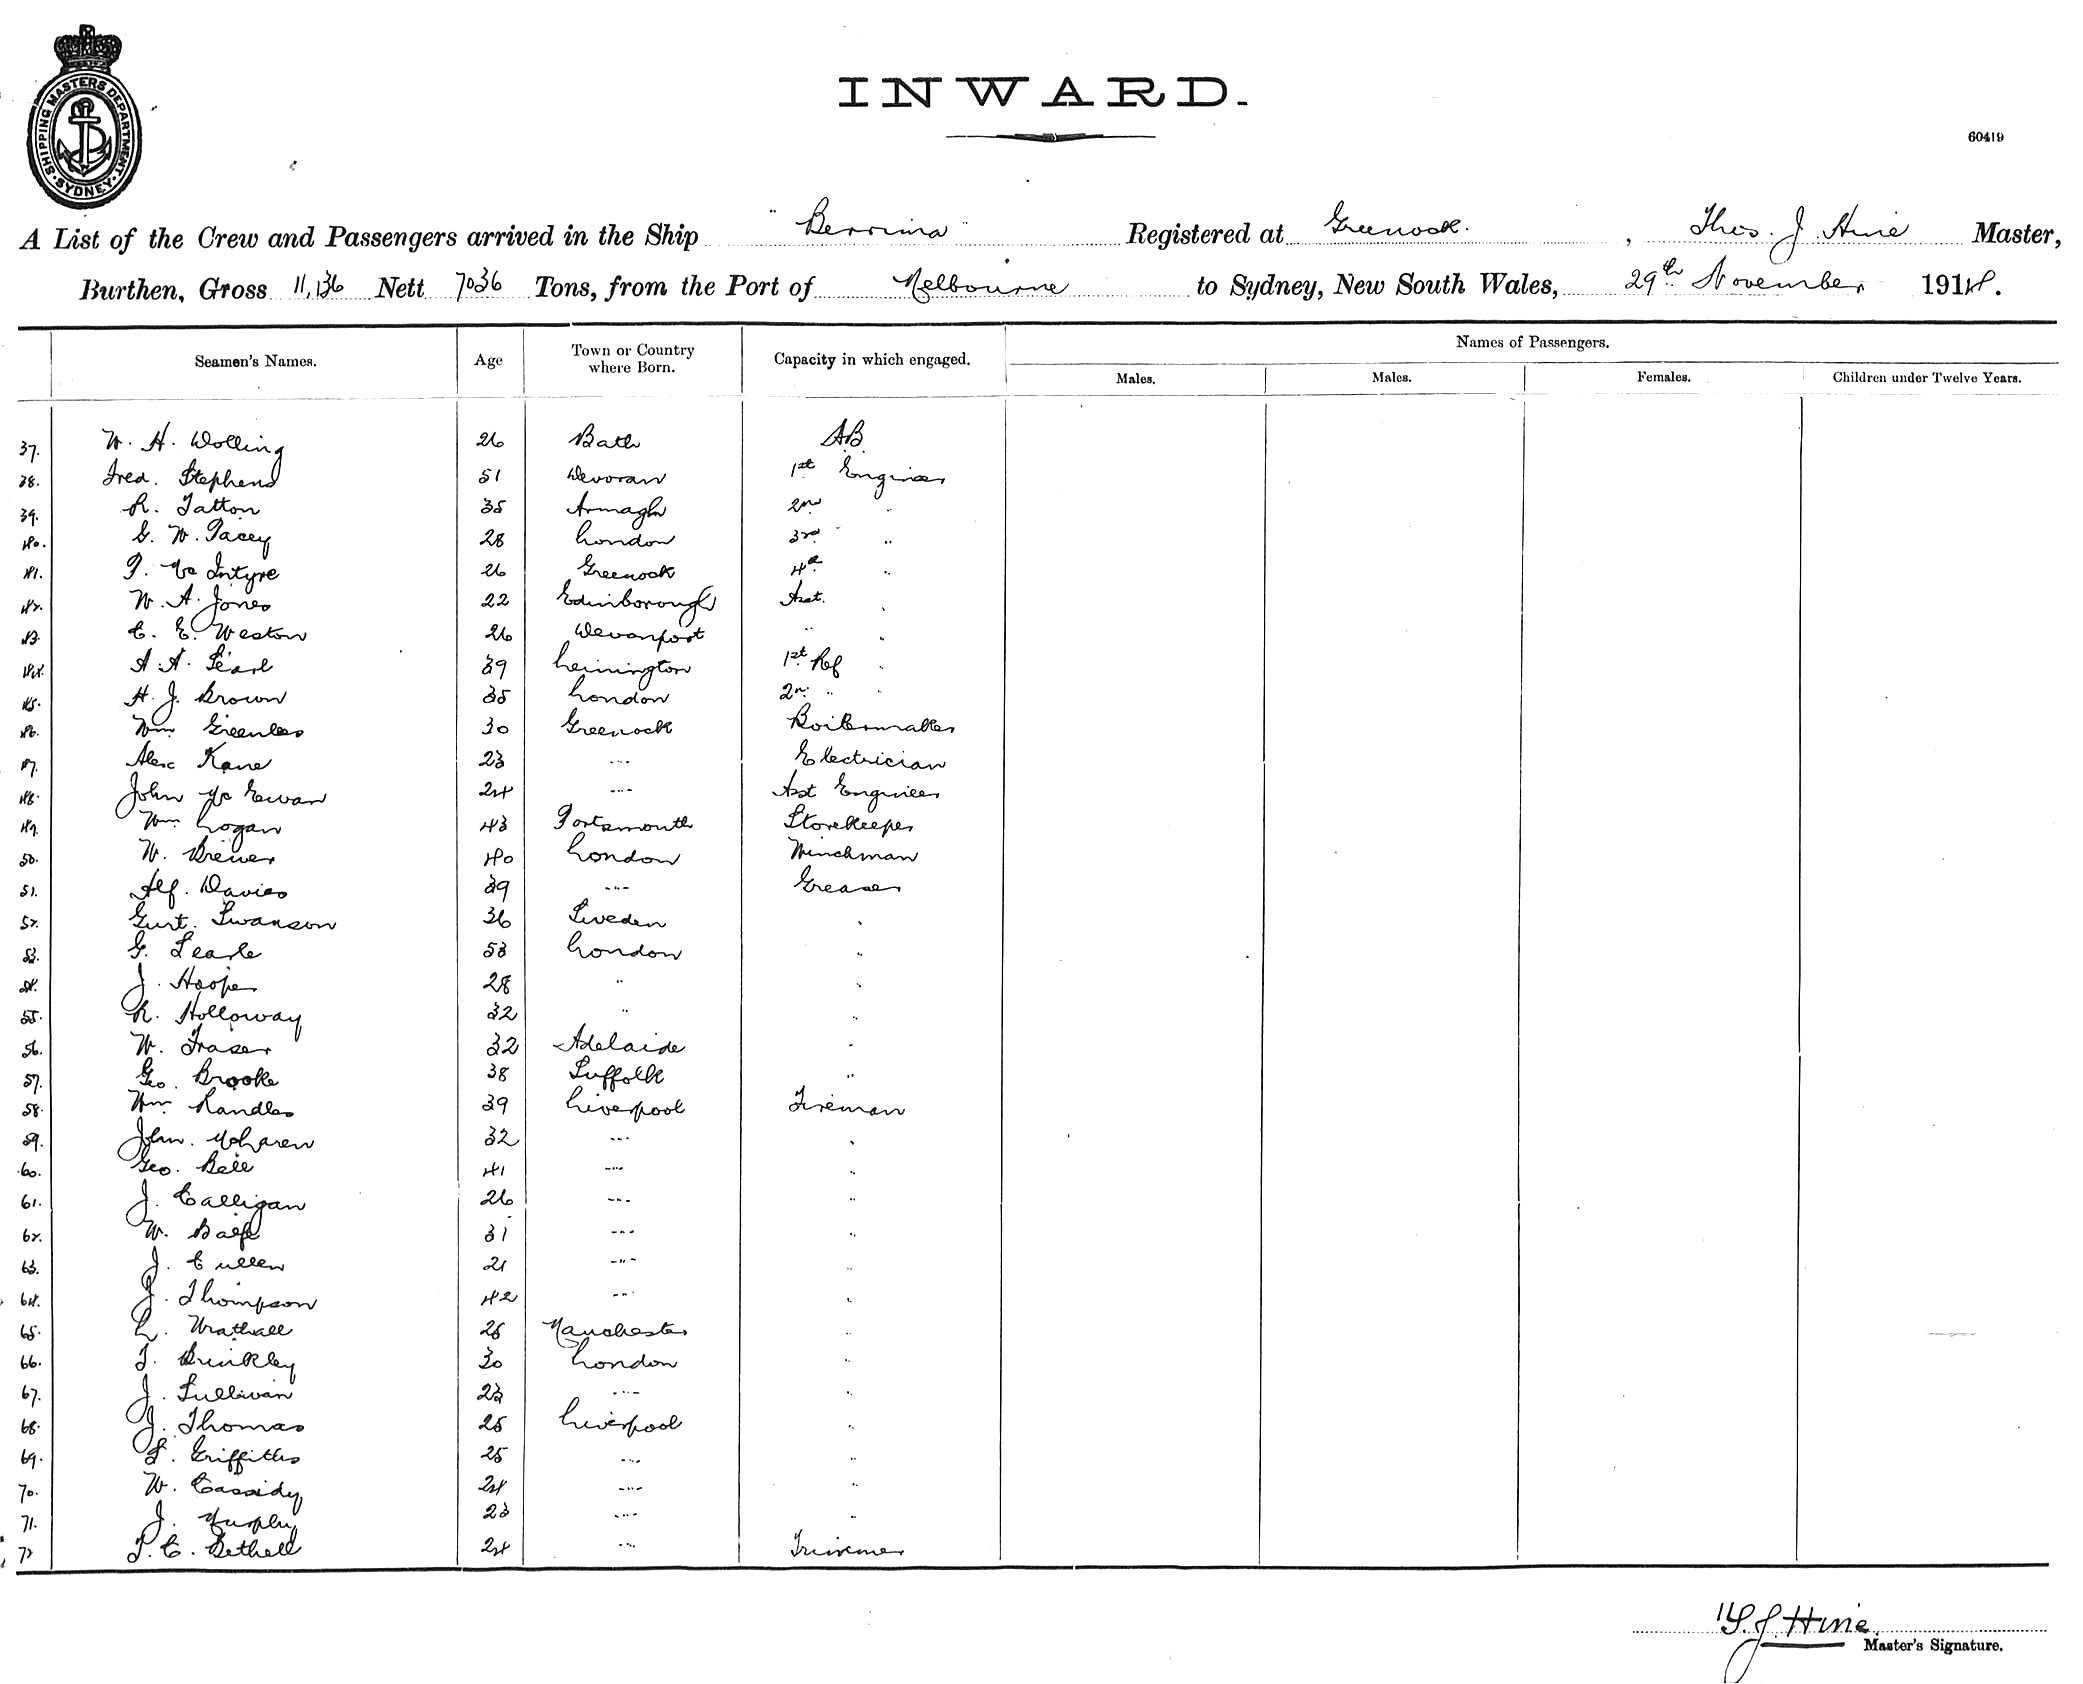 SHIPPING MASTERS DEPARTMENT
SYDNEY
INWARD.
60419
A List of the Crew and Passengers arrived in the Ship "Berrima" Registered at Greenock. , Thos. J Hine Master,
Burthen, Gross 11,136 Nett 7036 Tons, from the Port of Melbourne to Sydney, New South Wales, 29th November 1914.
Seamen's Names. Age Town or Country where Born. Capacity in which engaged. Names of Passengers.
Males. Males. Females. Children under Twelve Years.
37. W. H. Wolling 26 Bath AB
38. Fred. Stephens 51 Devoran 1st Engineer
39. R. Tatton 35 Armagh 2nd "
40. G. W. Pacey 28 London 3rd "
41. P. McIntyre 26 Greenock 4th "
42. W. A. Jones 22 Edinborough Asst. "
43. C. E. Weston 26 Devonport " "
44. A. A. Searl 39 1st Ref "
45. H. J. Brown 35 London 2nd " "
46. Wm. Greenlees 30 Greenock Boilermaker
47. Alex Kane 23 --"-- Electrician
48. John McEwan 24 --"-- Asst Engineer
49. Wm. Logan 43 Portsmouth Storekeeper
50. W. Brewer 40 London Winchman
51. Alf. Davies 39 --"-- Greaser
52. Swanson 36 Sweden "
53. G. Searle 53 London "
54. J. Hooper 28 " "
55. R. Holloway 32 " "
56. W. Fraser 32 Adelaide "
57. Geo. Brooke 38 Suffolk "
58. Wm. Randles 39 Liverpool Fireman
59. John. McLaren 32 --"-- "
60. Geo. Bell 41 --"-- "
61. J. Calligan 26 --"-- "
62. W. Balfe 31 --"-- "
63. J. Cullen 21 --"-- "
64. J. Thompson 42 --"-- "
65. L. Wrathall 25 Manchester "
66. T. Brinkley 30 London "
67. J. Sullivan 23 --"-- "
68. J. Thomas 25 Liverpool "
69. S. Griffiths 25 --"-- "
70. W. Cassidy 24 --"-- "
71. J. Murphy 23 --"-- "
72 T. C. Bethell 24 --"-- Trimmer
T. J. Hine.
Master's Signature.